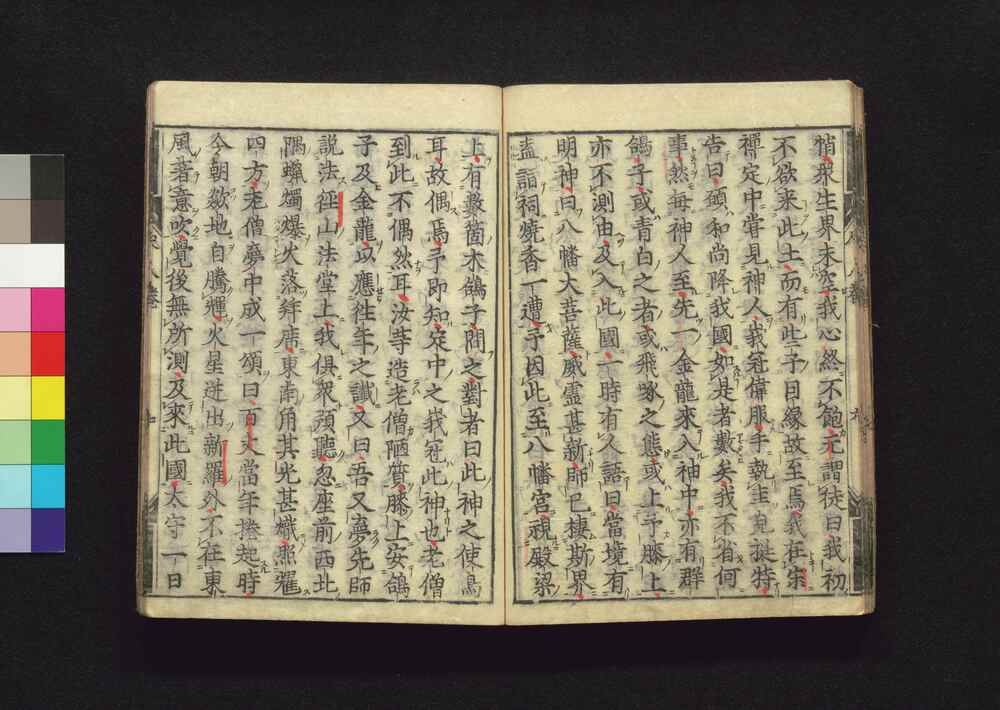 稍衆生界未空我心然不飽元謂徒曰我初
不欲来此土而有些子因縁故至焉我在宋
禪定中甞見神人峩冠偉服手執圭
告曰願和尚降我國如是者數矣我不省何
事然每神人至先一金龍來入神中亦有群
鴿子或青白之者或飛啄之態或上予膝上
亦不測由及入此國一時有人語曰當境有
明神曰八幡大菩薩威靈甚新師已棲斯界
盍詣祠燒香一遭予因此至八幡宮視殿梁
上有數箇木鴿子問之對者曰此神之使鳥
耳故偶焉予即知定中之峩冠此神也老僧
到此不偶然耳汝等造老僧陋質膝上安鴿
子及金龍以應徃年之讖又曰吾又夢先師
說法徑山法堂上我俱衆預聽忽座前西北
隅蠟燭爆火落拜席東南角其光甚熾照耀
四方老僧夢中成一頌曰百丈當年捲起時
今朝歘地自騰輝火星迸出新羅外不在東
風著意吹覺後無所測及來此國太守一日